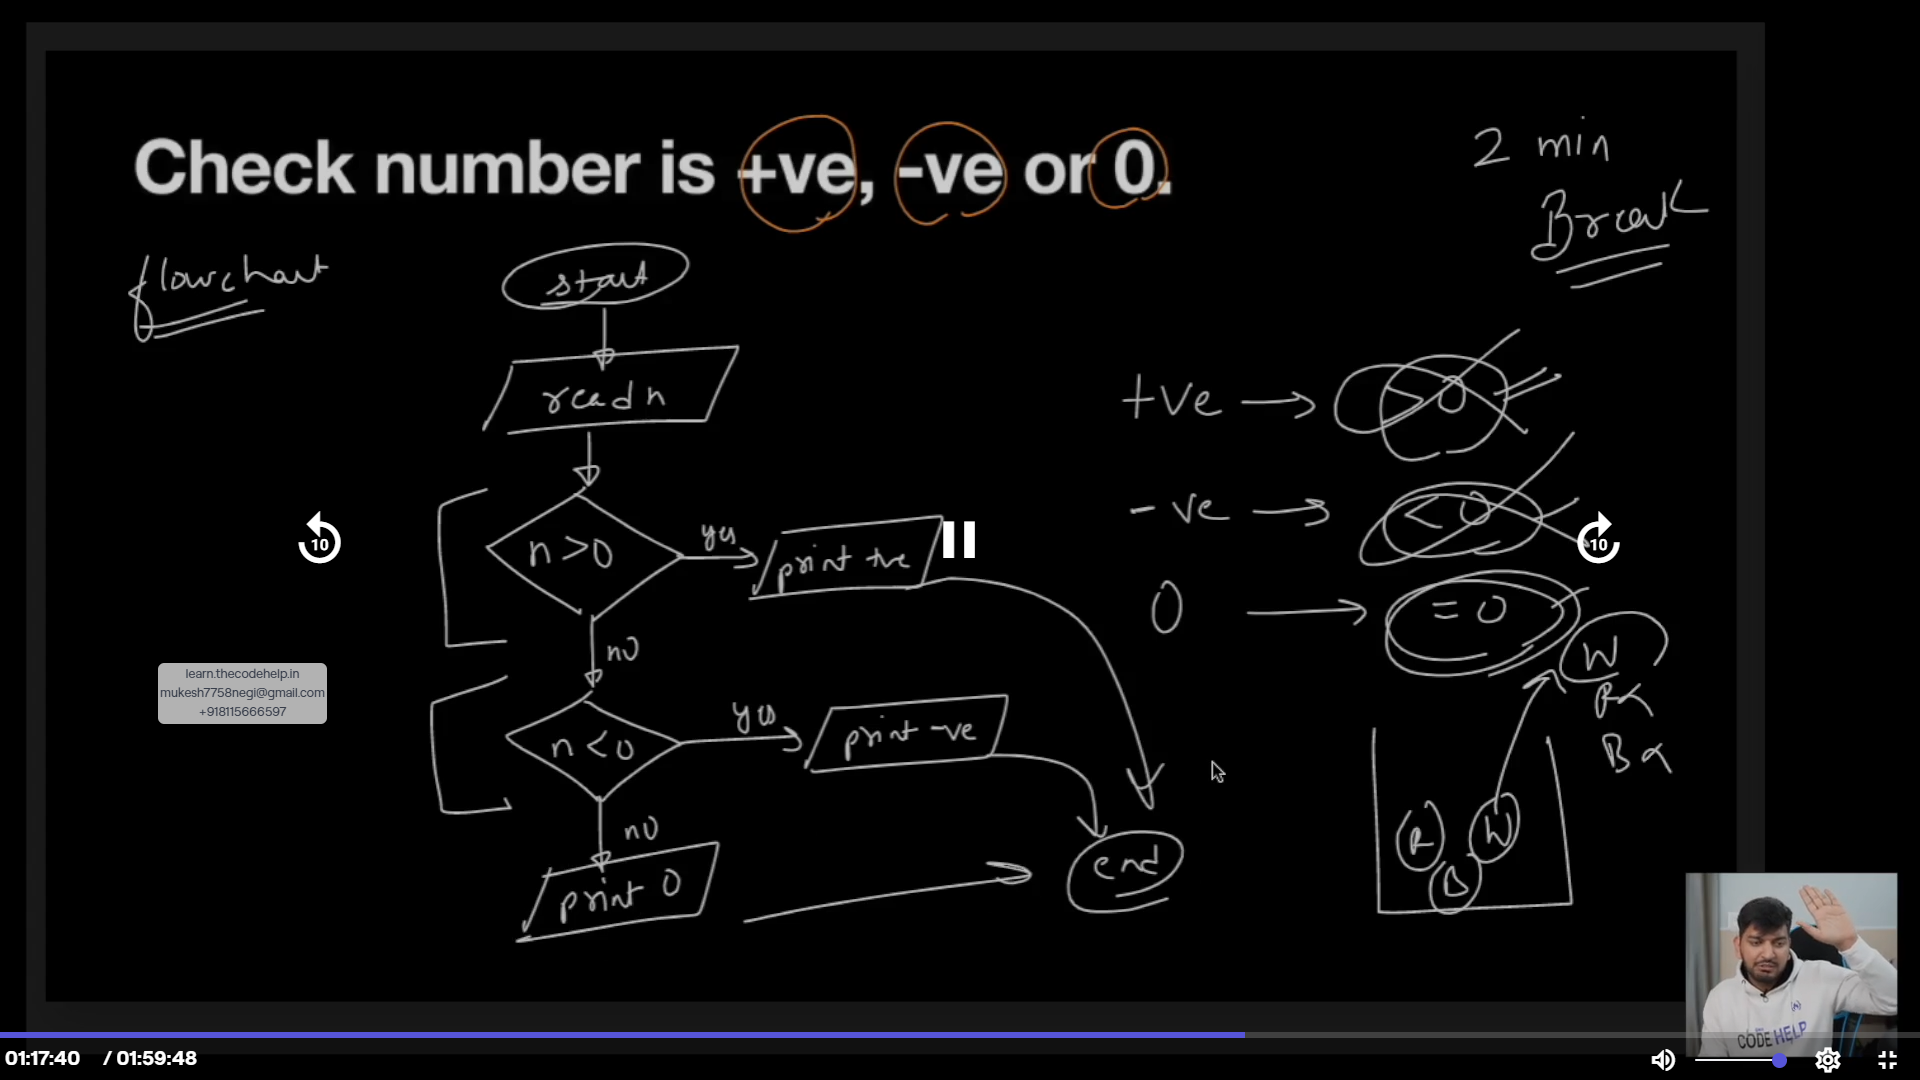 Check number is +ve, -ve or 0.
2 min
Break
flowchart
start
read n
n > 0
yes
print +ve
no
n < 0
yes
print -ve
no
print 0
end
+ve → > 0
-ve → < 0
0 → = 0
W
R
B
R
W
B
10
10
learn.thecodehelp.in
mukesh7758negi@gmail.com
+918115666597
CODE HELP
01:17:40 / 01:59:48